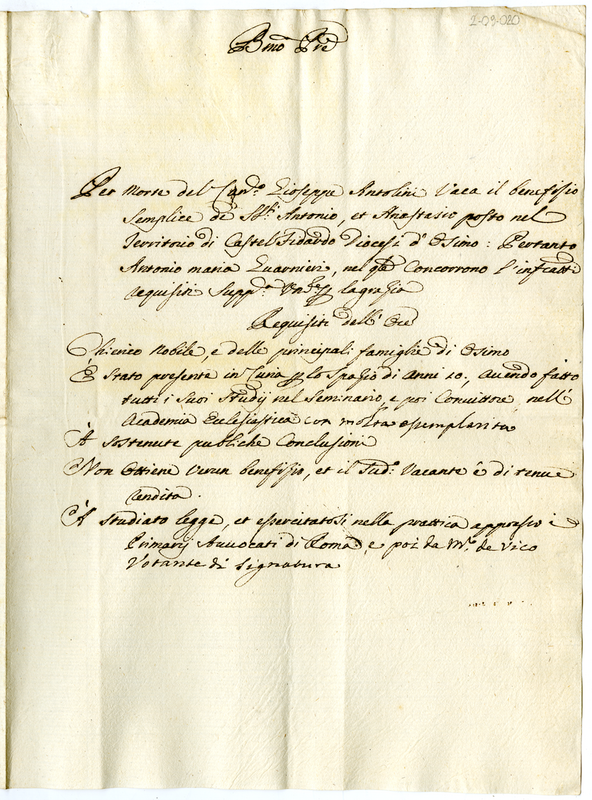 2-09-020
Bmo Pre
Per Morte del Can.co Gioseppe Antolini Vaca il benefisio
Semplice de SS.ti Antonio, et Anastasio posto nel
Territorio di Castel Fidardo Diocesi d'Osimo: Pertanto
Antonio maria Guarnieri, nel qle Concorrono l'infratti
requisiti Supp.ca lagrasia
Requisiti dell'Ore
Chierico Nobile, e delle principali famiglie di Osimo
È Stato presente in Curia lo Spasio di Anni 10., avendo fatto
tutti i Suoi Studij nel Seminario, e poi Convittore nell'
Academia Ecclesiastica con molta esemplarità
À sostenute publiche Conclusioni
Non Ottiene Verun benefisio, et il Sud.o Vacante è di tenue
rendita.
À Studiato legge, et esercitatosi nella prattica appresso i
Primarij Avvocati di Roma, e poi da M.r de Vico
Votante di Signatura